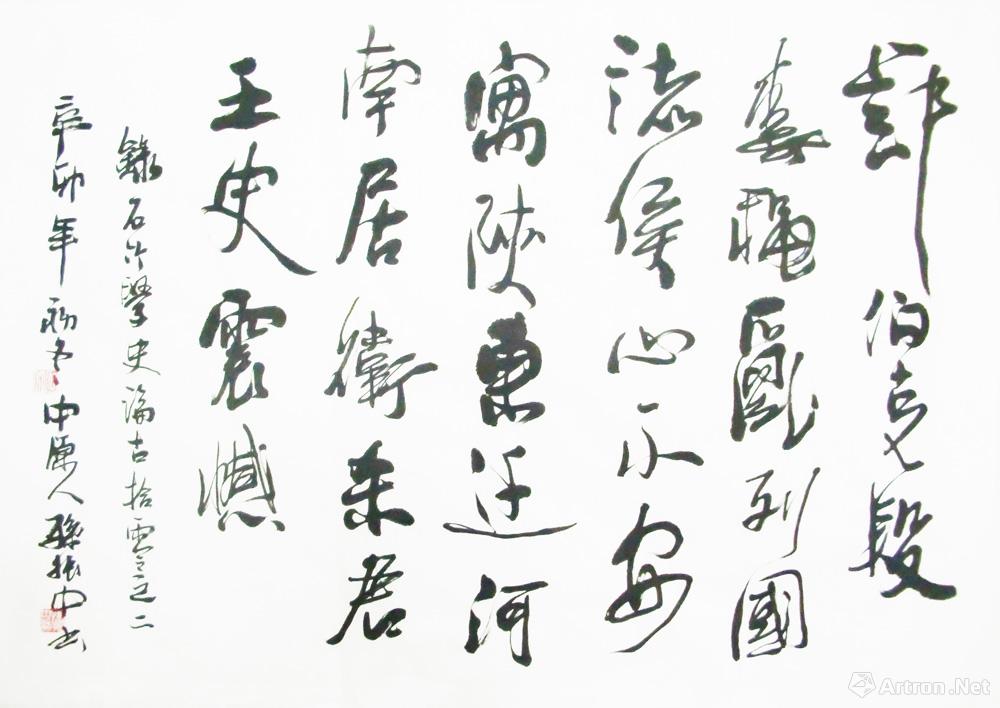 鄭伯克段
亂列國
諸侯心不安
寓陝東迁河
南居衛君
王史震憾
錄石竹學史論古拾零之二
辛卯年初冬中原人孫振中书
Artron.Net